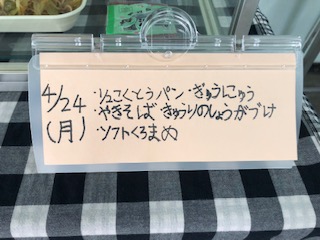 4/24 ・1/2こくとうパン・ぎゅうにゅう
(月) ・やきそば きゅうりのしょうがづけ
・ソフトくろまめ